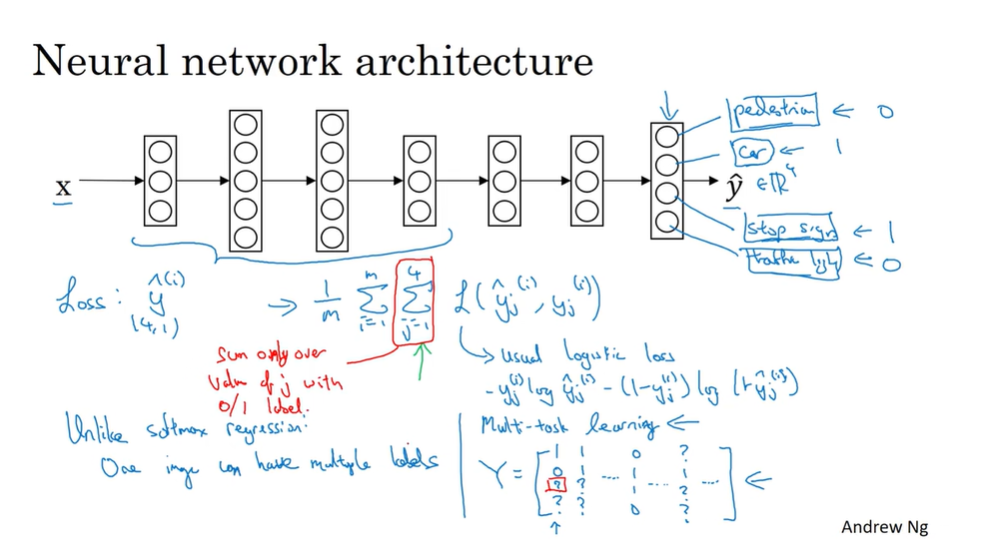 Neural network architecture
x
pedestrian ← 0
car ← 1
ŷ ∈ℝ⁴
stop sign ← 1
traffic light ← 0
Loss: ŷ^(i) → 1/m Σ_{i=1}^{m} Σ_{j=1}^{4} L(ŷ_j^(i), y_j^(i))
(4,1)
Sum only over
value of j with
0/1 label.
usual logistic loss
-y_j^(i) log ŷ_j^(i) - (1-y_j^(i)) log (1-ŷ_j^(i))
Unlike softmax regression:
One image can have multiple labels
Multi-task learning ←
Y = [
1 1 0 ?
0 1 1 1
? ? .... 1 .... ? ....
? ? 0 ?
] ←
Andrew Ng